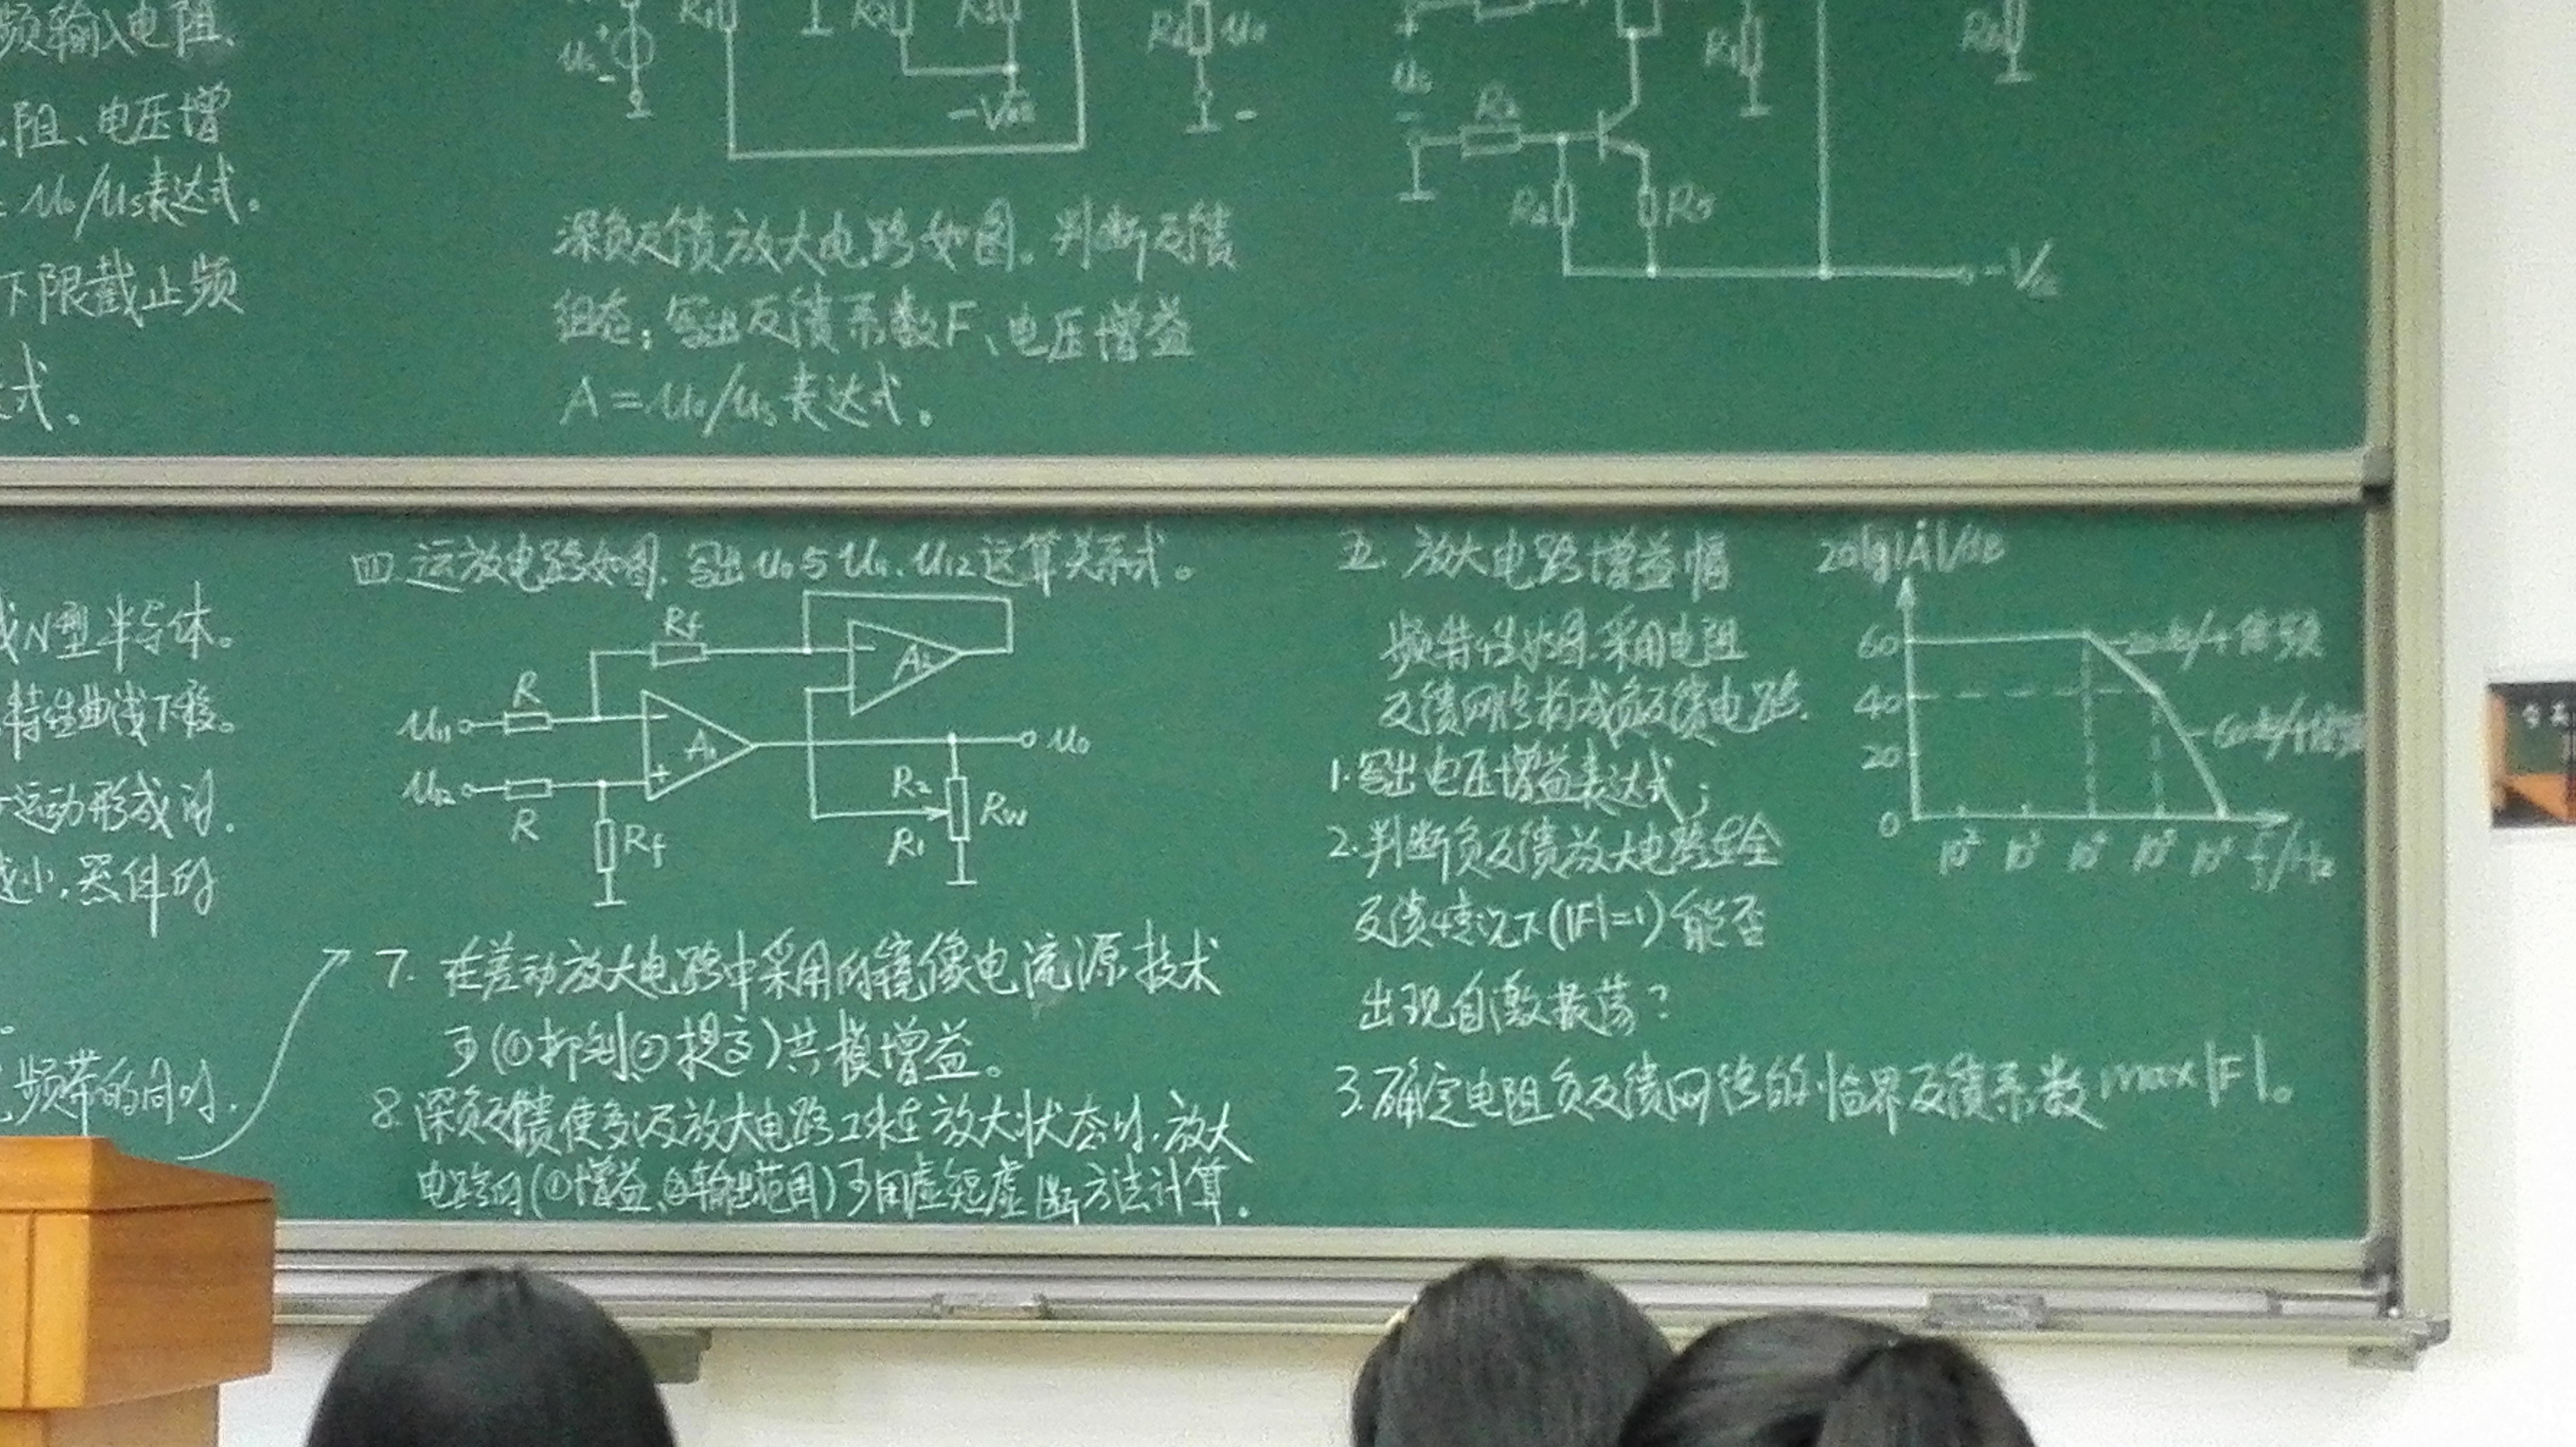 频输入电阻、
阻、电压增
u₀/us表达式。
下限截止频
式。
us
+
-
R2
R3
-VEE
RL
u₀
-
深负反馈放大电路如图。判断反馈
组态；写出反馈系数F、电压增益
A=u₀/us表达式。
R2
R4
R5
RL
成N型半导体。
特性曲线下移。
运动形成的.
减小.器件的
频带的同时.
四.运放电路如图.写出u₀与ui1、ui2运算关系式。
ui1
R
Rf
A2
-
-
A1
+
ui2
R
Rf
u₀
R2
R1
Rw
7. 在差动放大电路中采用的镜像电流源技术
可(①抑制②提高)共模增益。
8.深负反馈使多级放大电路工作在放大状态时.放大
电路的(①增益、②输出范围)可用虚短虚断方法计算.
五. 放大电路增益幅
频特性如图.采用电阻
反馈网络构成负反馈电路.
1.写出电压增益表达式；
2.判断负反馈放大电路在全
反馈情况下(|F|=1)能否
出现自激振荡？
3.确定电阻负反馈网络的临界反馈系数max|F|。
20lg|Ȧ|/dB
60
40
20
0
-20dB/十倍频
-60dB/十倍频
10²
10³
10⁴
10⁵
10⁶
f/Hz